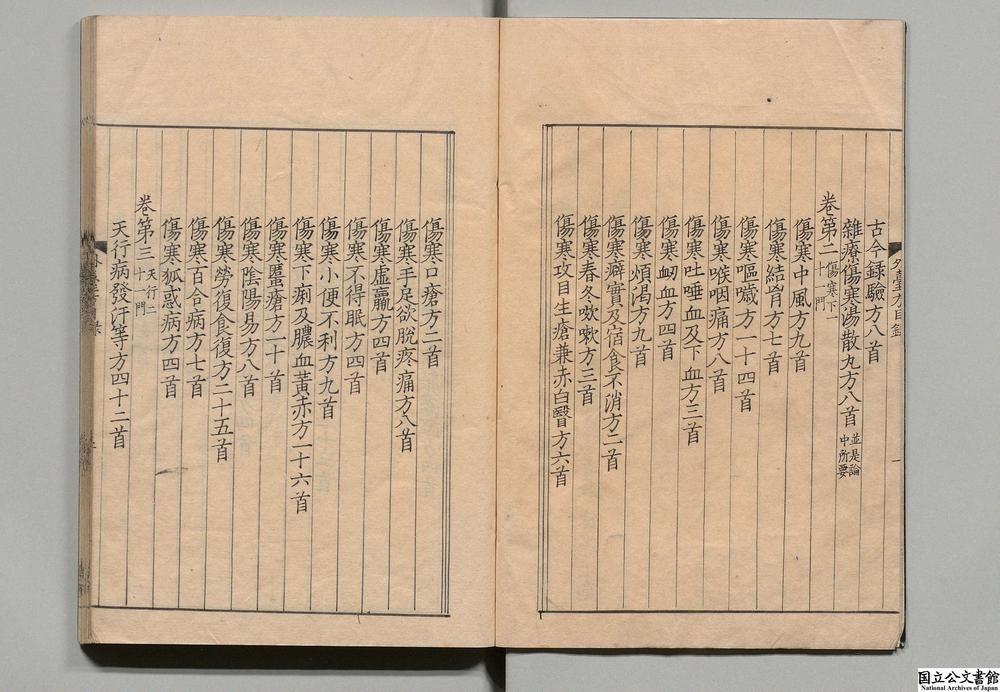 古今録驗方八首
雜療傷寒湯散丸方八首 並是論中所要
卷第二 傷寒下一十一門
傷寒中風方九首
傷寒結胷方七首
傷寒嘔噦方一十四首
傷寒喉咽痛方八首
傷寒吐唾血及下血方三首
傷寒衂血方四首
傷寒煩渴方九首
傷寒癖實及宿食不消方二首
傷寒春冬欬嗽方三首
傷寒攻目生瘡兼赤白瞖方六首
傷寒口瘡方二首
傷寒手足欲脫疼痛方八首
傷寒虛羸方四首
傷寒不得眠方四首
傷寒小便不利方九首
傷寒下痢及膿血黃赤方一十六首
傷寒䘌瘡方一十首
傷寒陰陽易方八首
傷寒勞復食復方二十五首
傷寒百合病方七首
傷寒狐惑病方四首
卷第三 天行二十一門
天行病發汗等方四十二首
外臺方目錄
一
国立公文書館
National Archives of Japan